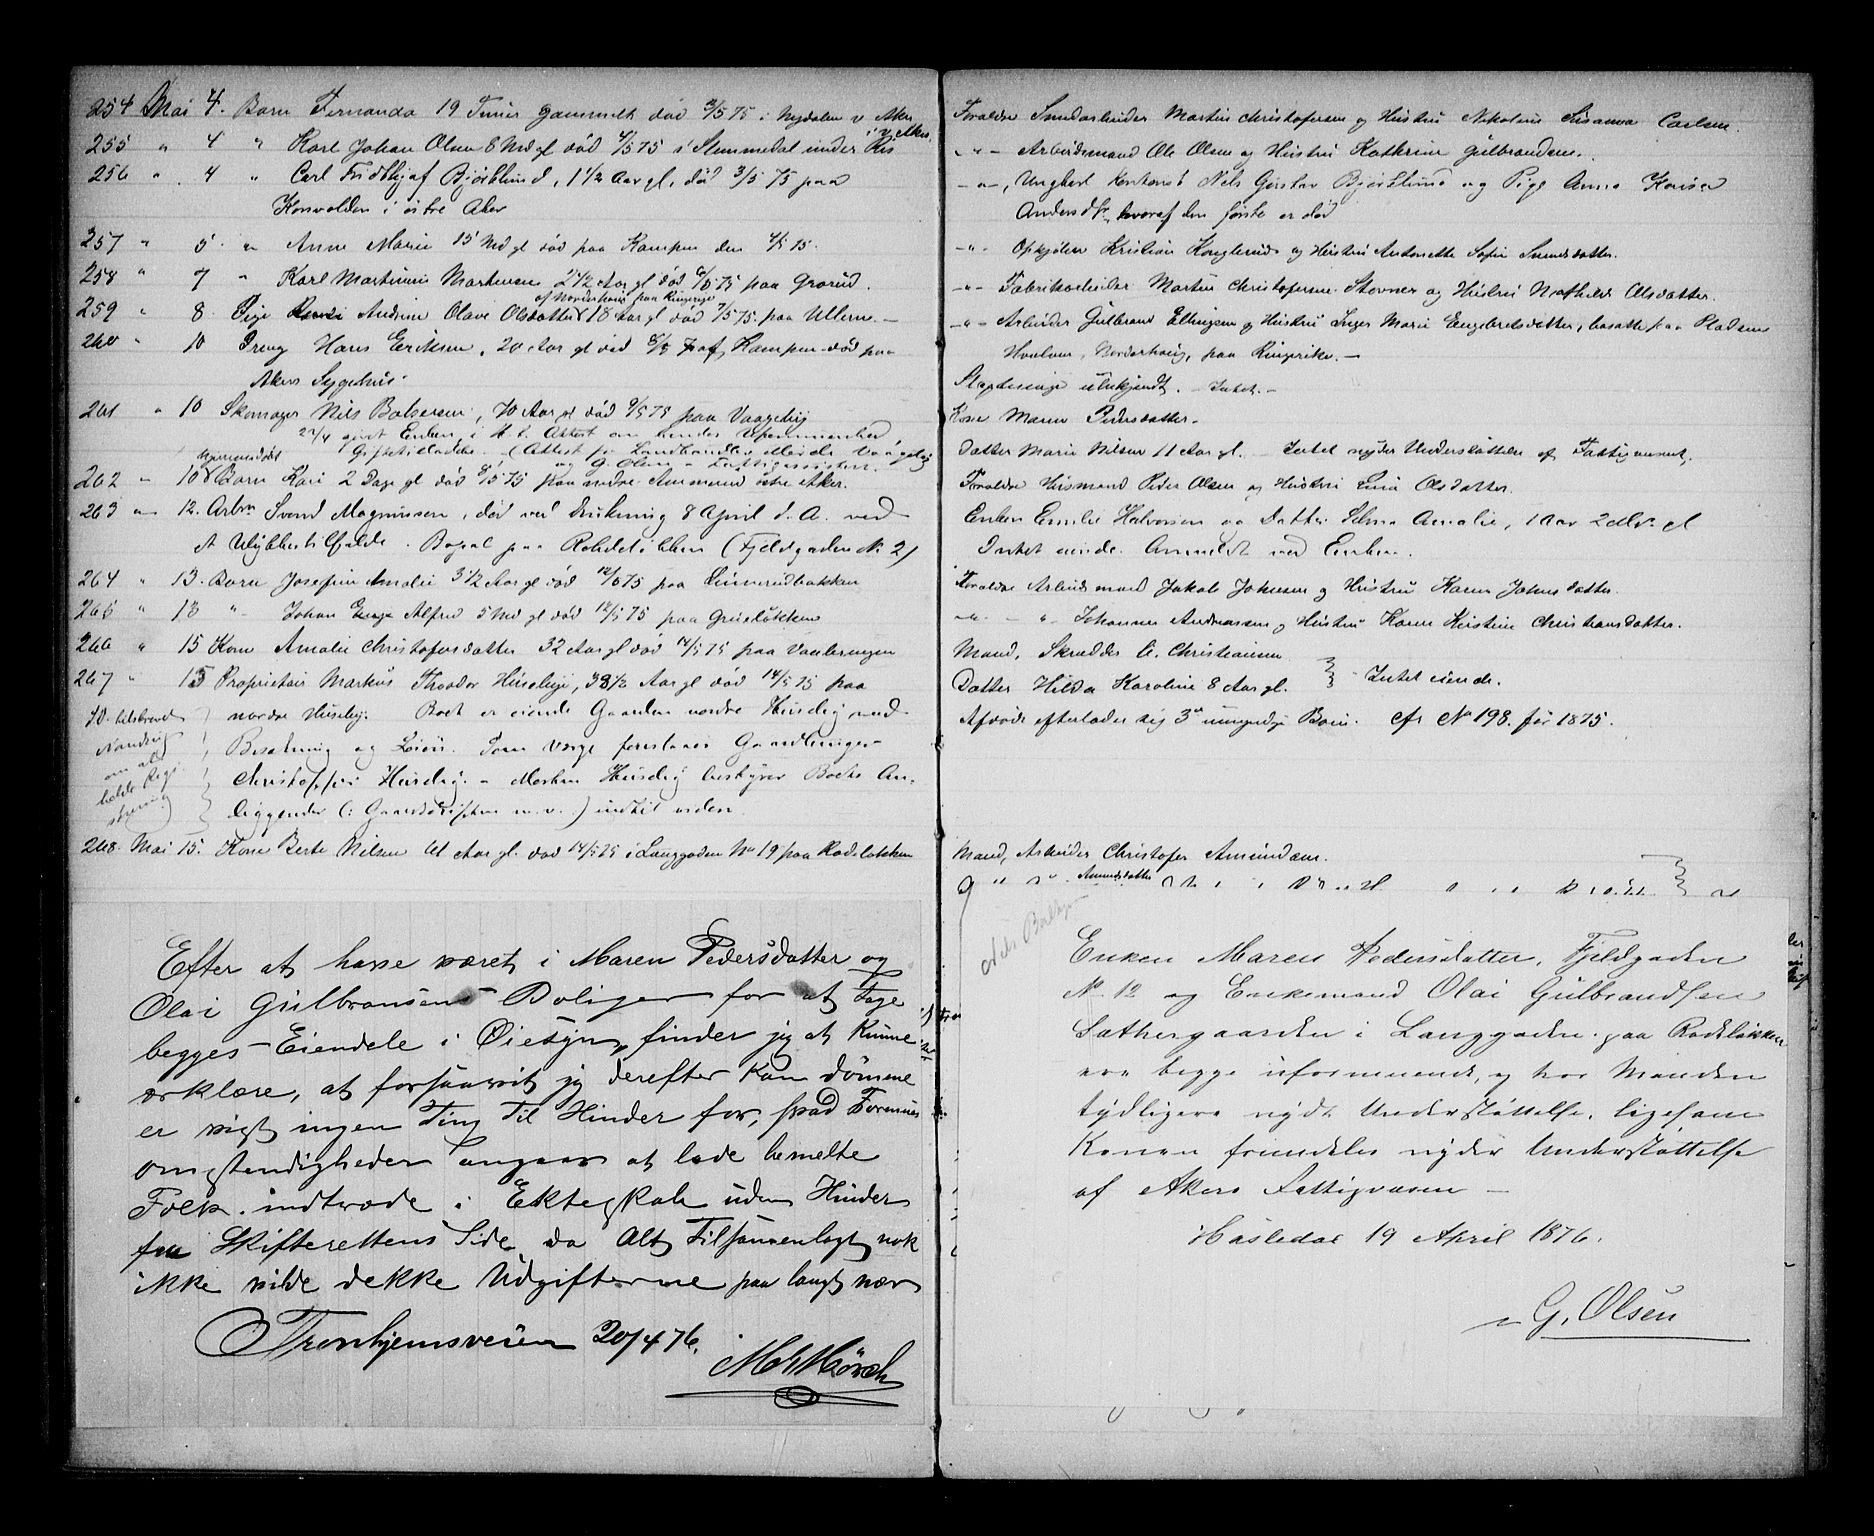 254 Mai 4. Barn Fernanda 19 Timer gammelt død 3/5 75 i Nydalen v. Aker
255 " 4 " Karl Johan Olsen 8 Md gl død 4/5 75 i Slemmedal under Ris i V. Aker
256 " 4 " Carl Fridthjof Bjørklund, 1 1/2 Aar gl. død 3/5 75 paa
Konvolden i østre Aker
257 " 5 " Anne Marie 15 Md gl død paa Kampen den 4/5 75.
258 " 7 " Karl Martinius Martinsen 2 1/2 Aar gl død 6/5 75 paa Grorud.
af Norderhoug paa Ringerige
259 " 8. Pige Andrine Olave Olsdatter 18 Aar gl død 7/5 75. paa Ullern. —
260 " 10 Dreng Hans Eriksen, 20 Aar gl død 8/5 af Kampen død paa
Akers Sygehus.
261 " 10 Skomager Nils Balsersen, 70 Aar gl død 9/5 75 paa Vaageby
22/4 givet Enken i H. t. Attest om hendes Uformuenhed
Giftetilladelse. (Attest fra Landhandler
og G. Olsen
262 " 10 Barn Kari 2 Dage gl død 8/5 75 paa nedre Ammerud østre Aker.
263 " 12. Arbm Svend Magnussen, død ved Drukning 8 April d. A. ved
et Ulykkestilfælde. Bopæl paa Rodeløkken (Fjeldgaden No 2)
264 " 13. Barn Josefine Amalie 3 1/2 Aar gl død 12/5 75 paa
265 " 13 " Johan Alfred 5 Md gl død 12/5 75 paa Grüneløkken
266 " 15 Kone Amalie Christofersdatter 32 Aar gl død 14/5 75 paa Vaalerengen
267 " 15 Proprietair Markus Theodor Huseby, 38 1/2 Aar gl død 14/5 75 paa
nordre Huseby. Boet er eiende Gaarden nordre Huseby med
Besætning og Løsøre. Som Værge foreslaaes Gaardbruger
Christoffer Huseby. Morten Huseby bestyrer Boets An-
liggender (: Gaardsdriften m. v.) indtil videre.
268. Mai 15. Kone Berte Nilsen 61 Aar gl. død 14/5 75 i Langgaden No 19 paa Rodeløkken
Efter at have været i Maren Pedersdatter og
Olai Gulbransens Boliger for at Tage
begges Eiendele i Øiesyn, finder jeg at kunne
erklære, at forsaavit jeg derefter kan dømme
er vist ingen Ting Til Hinder for, hvad Formues
omstendigheder angaar at lade bemelte
Folk indtræde i Ekteskab uden Hinder
fra Skifterettens Side, da Alt Tilsammenlagt nok
ikke vilde dekke Udgifterne paa langt nær
Tronhjemsveien 20/4 76.
Forældre Smedarbeider Martin Christofersen og Hustru Nikoline Susanna Carlsen.
" " Arbeidsmand Ole Olsen og Hustru Kathrine Gulbrandsen.
" ", Ungkarl Kontorist Nils Gustav Bjørklund og Pige Anna
Andersdtr, hvoraf den første er død
" " Opkjøber Kristian Konglerud og Hustru Antonette Sofie Svendsdatter.
" " Fabrikarbeider Martin Christofersen Stovner og Hustru Mathilde Olsdatter.
" " Arbeider Gulbrand Ellingsen og Hustru Inger Marie Engebretsdatter, bosatte paa Pladsen
Norderhoug, paa Ringerike. —
Slægtninge ubekjendt. — Intet. —
Kone Maren Pedersdatter.
Datter Marie Nilsen 11 Aar gl. — Intet nyder Understøttelse af Fattigvæsenet.
Forældre Husmand Peder Olsen og Hustru Olsdatter.
Enken Emilie Halvorsen og Datter Selma Amalie, 1 Aar 2 Mdr. gl
Intet eiende. Anmeldt ved Enken.
Forældre Arbeidsmand Jakob Johnsen og Hustru Karen Johnsdatter.
" " Johannes Andreassen og Hustru Karen Kirstine Christiansdatter.
Mand, Skrædder A. Christiansen
Datter Hilda Karoline 8 Aar gl. } Intet eiende.
Afdøde efterlader sig 3 umyndige Børn. Cfr No 198. for 1875.
Mand, Arbeider Christofer Amundsen.
Enken Maren Pedersdatter, Fjeldgaden
No 12 og Enkemand Olai Gulbrandsen
Sæthergaarden i Langgaden paa Rodeløkken
ere begge uformuende, og har Manden
tydligere nydt Understøttelse, ligesom
Konen fremdeles nyder Understøttelse
af Akers Fattigvæsen —
Hasledal 19 April 1876.
G. Olsen